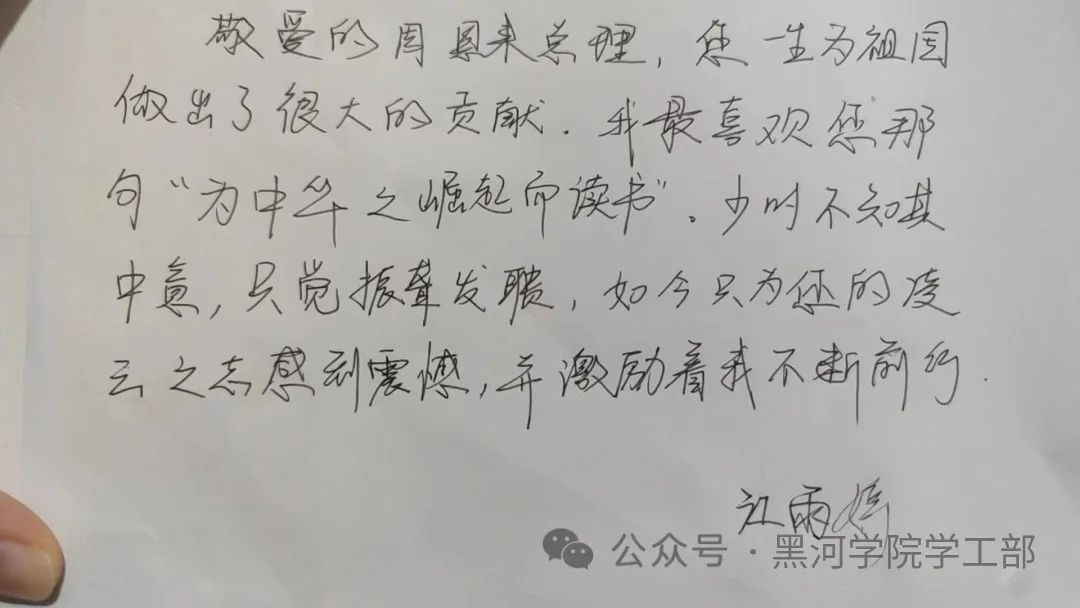 敬爱的周恩来总理，您一生为祖国
做出了很大的贡献．我最喜欢您那
句“为中华之崛起而读书”．少时不知其
中意，只觉振聋发聩，如今只为您的凌
云之志感到震憾，并激励着我不断前行．
江雨婷
公众号·黑河学院学工部